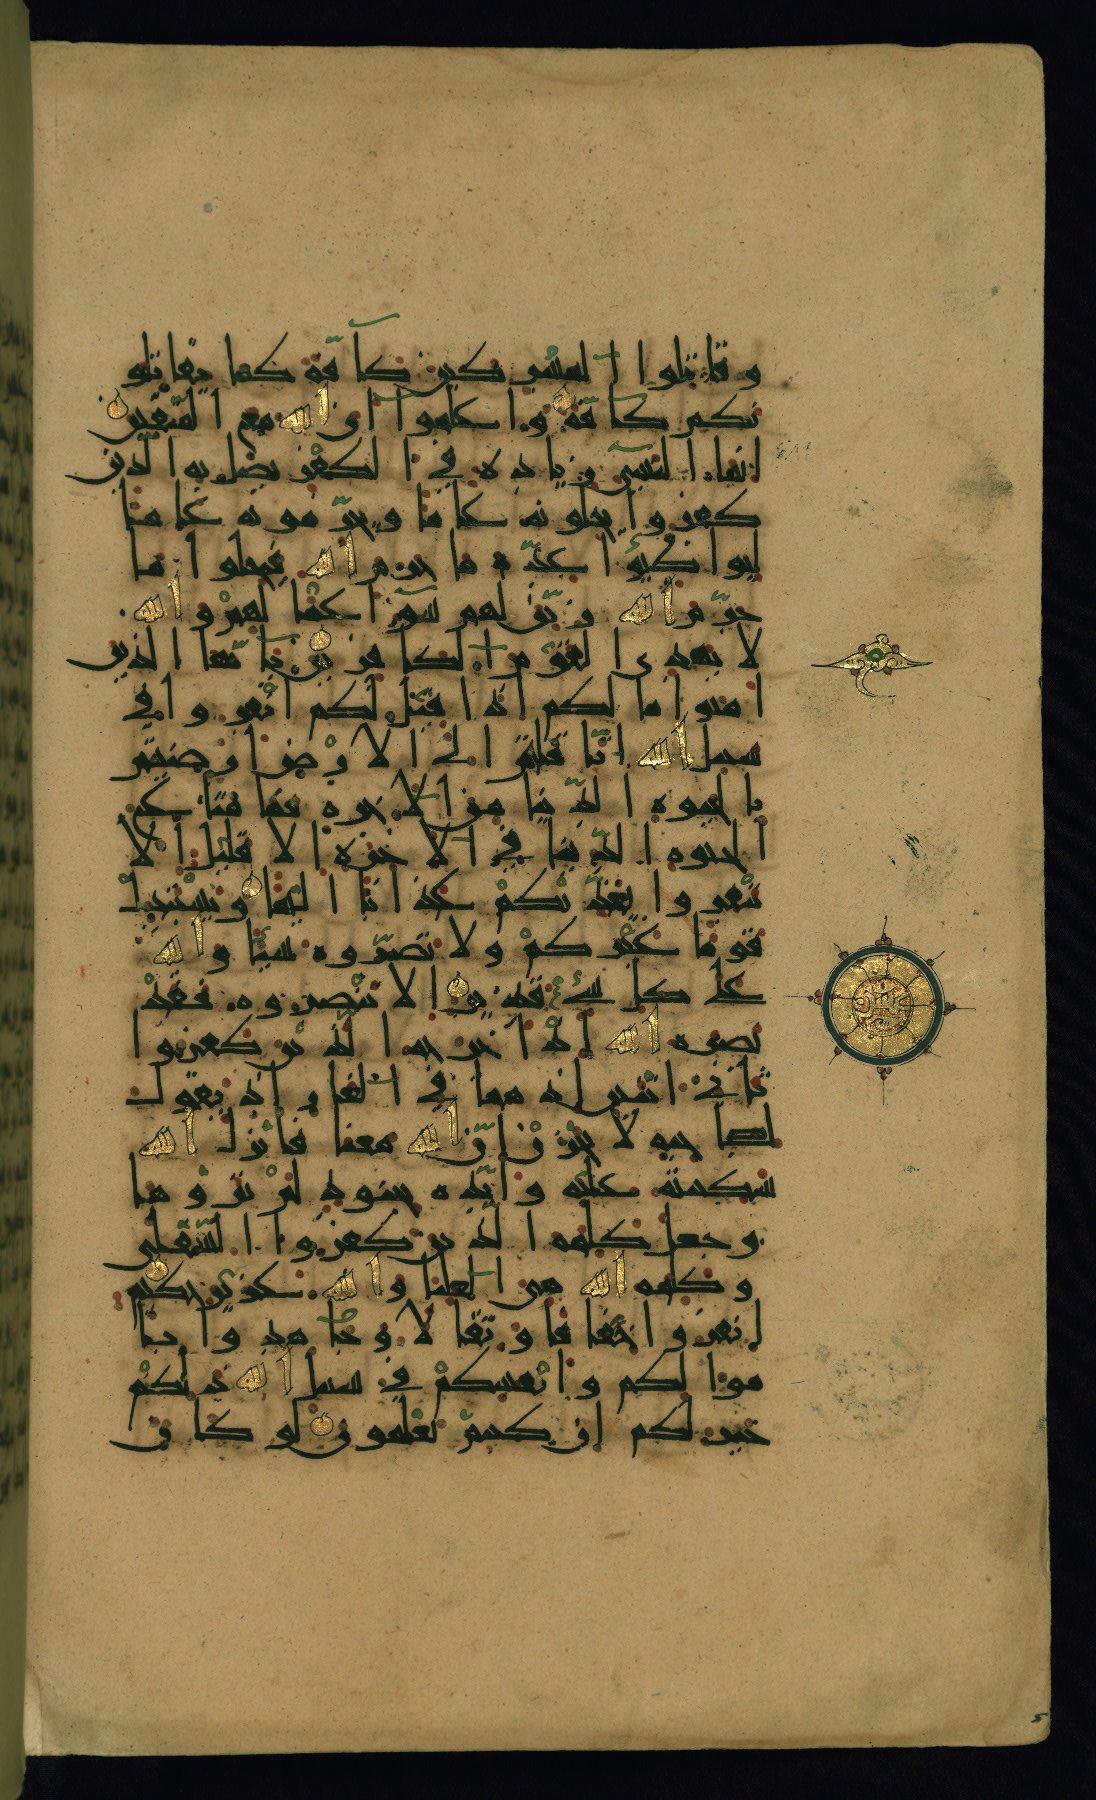 وقاتلوا المشركين كآفة كما يقاتلو
نكم كآفة واعلموا ان الله مع المتقين
انما النسيء زيادة في الكفر يضل به الذين
كفروا يحلونه عاما ويحرمونه عاما
ليواطئوا عدة ما حرم الله فيحلوا ما
حرم الله زين لهم سوء اعمالهم والله
لا يهدي القوم الكافرين يا ايها الذين
امنوا ما لكم اذا قيل لكم انفروا في
سبيل الله اثاقلتم الى الارض ارضيتم
بالحيوة الدنيا من الاخرة فما متاع
الحيوة الدنيا في الاخرة الا قليل الا
تنفروا يعذبكم عذابا اليما ويستبدل
قوما غيركم ولا تضروه شيئا والله
على كل شيء قدير الا تنصروه فقد
نصره الله اذ اخرجه الذين كفروا
ثاني اثنين اذ هما في الغار اذ يقول
لصاحبه لا تحزن ان الله معنا فانزل الله
سكينته عليه وايده بجنود لم تروها
وجعل كلمة الذين كفروا السفلى
وكلمة الله هي العليا والله عزيز حكيم
انفروا خفافا وثقالا وجاهدوا با
موالكم وانفسكم في سبيل الله ذلكم
خير لكم ان كنتم تعلمون لو كان